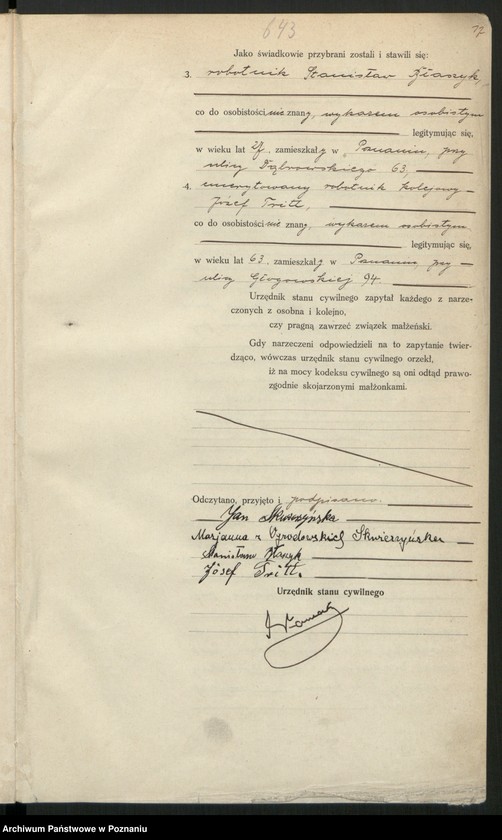 643
77
Jako świadkowie przybrani zostali i stawili się:
3. robotnik Stanisław Błaszyk,
co do osobistości nie znany, wykazem osobistym
legitymując się,
w wieku lat 27, zamieszkały w Poznaniu, przy
ulicy Dąbrowskiego 63,
4. emerytowany robotnik kolejowy
Józef Tritt,
co do osobistości nie znany, wykazem osobistym
legitymując się,
w wieku lat 63, zamieszkały w Poznaniu, przy
ulicy Głogowskiej 94.
Urzędnik stanu cywilnego zapytał każdego z narze-
czonych z osobna i kolejno,
czy pragną zawrzeć związek małżeński.
Gdy narzeczeni odpowiedzieli na to zapytanie twier-
dząco, wówczas urzędnik stanu cywilnego orzekł,
iż na mocy kodeksu cywilnego są oni odtąd prawo-
zgodnie skojarzonymi małżonkami.
Odczytano, przyjęto i podpisano.
Jan
Marjanna z Ogrodowskiej Skwierzyńska
Stanisław Błaszyk
Józef Tritt.
Urzędnik stanu cywilnego
Archiwum Państwowe w Poznaniu